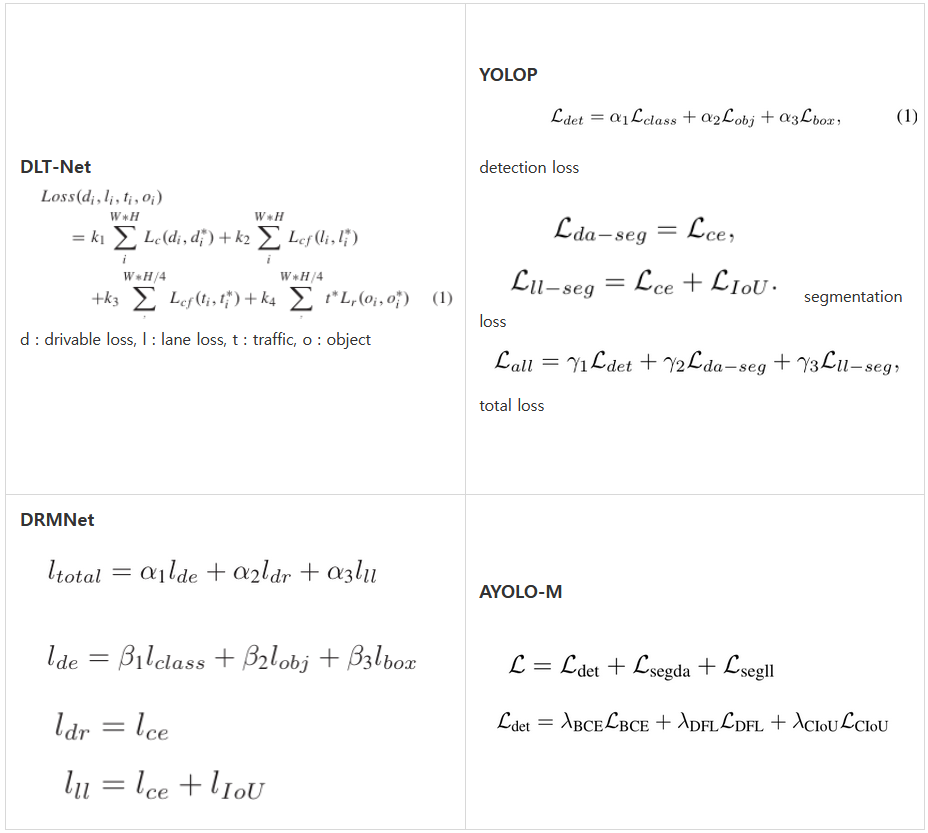 DLT-Net
Loss(d_i, l_i, t_i, o_i)
= k_1 \sum_{i}^{W*H} L_c(d_i, d_i^*) + k_2 \sum_{i}^{W*H} L_{cf}(l_i, l_i^*)
+k_3 \sum^{W*H/4} L_{cf}(t_i, t_i^*) + k_4 \sum^{W*H/4} t^* L_r(o_i, o_i^*) (1)
d : drivable loss, l : lane loss, t : traffic, o : object
YOLOP
\mathcal{L}_{det} = α_1\mathcal{L}_{class} + α_2\mathcal{L}_{obj} + α_3\mathcal{L}_{box}, (1)
detection loss
\mathcal{L}_{da-seg} = \mathcal{L}_{ce},
\mathcal{L}_{ll-seg} = \mathcal{L}_{ce} + \mathcal{L}_{IoU}. segmentation
loss
\mathcal{L}_{all} = γ_1\mathcal{L}_{det} + γ_2\mathcal{L}_{da-seg} + γ_3\mathcal{L}_{ll-seg},
total loss
DRMNet
l_{total} = α_1l_{de} + α_2l_{dr} + α_3l_{ll}
l_{de} = β_1l_{class} + β_2l_{obj} + β_3l_{box}
l_{dr} = l_{ce}
l_{ll} = l_{ce} + l_{IoU}
AYOLO-M
\mathcal{L} = \mathcal{L}_{det} + \mathcal{L}_{segda} + \mathcal{L}_{segll}
\mathcal{L}_{det} = λ_{BCE}\mathcal{L}_{BCE} + λ_{DFL}\mathcal{L}_{DFL} + λ_{CIoU}\mathcal{L}_{CIoU}